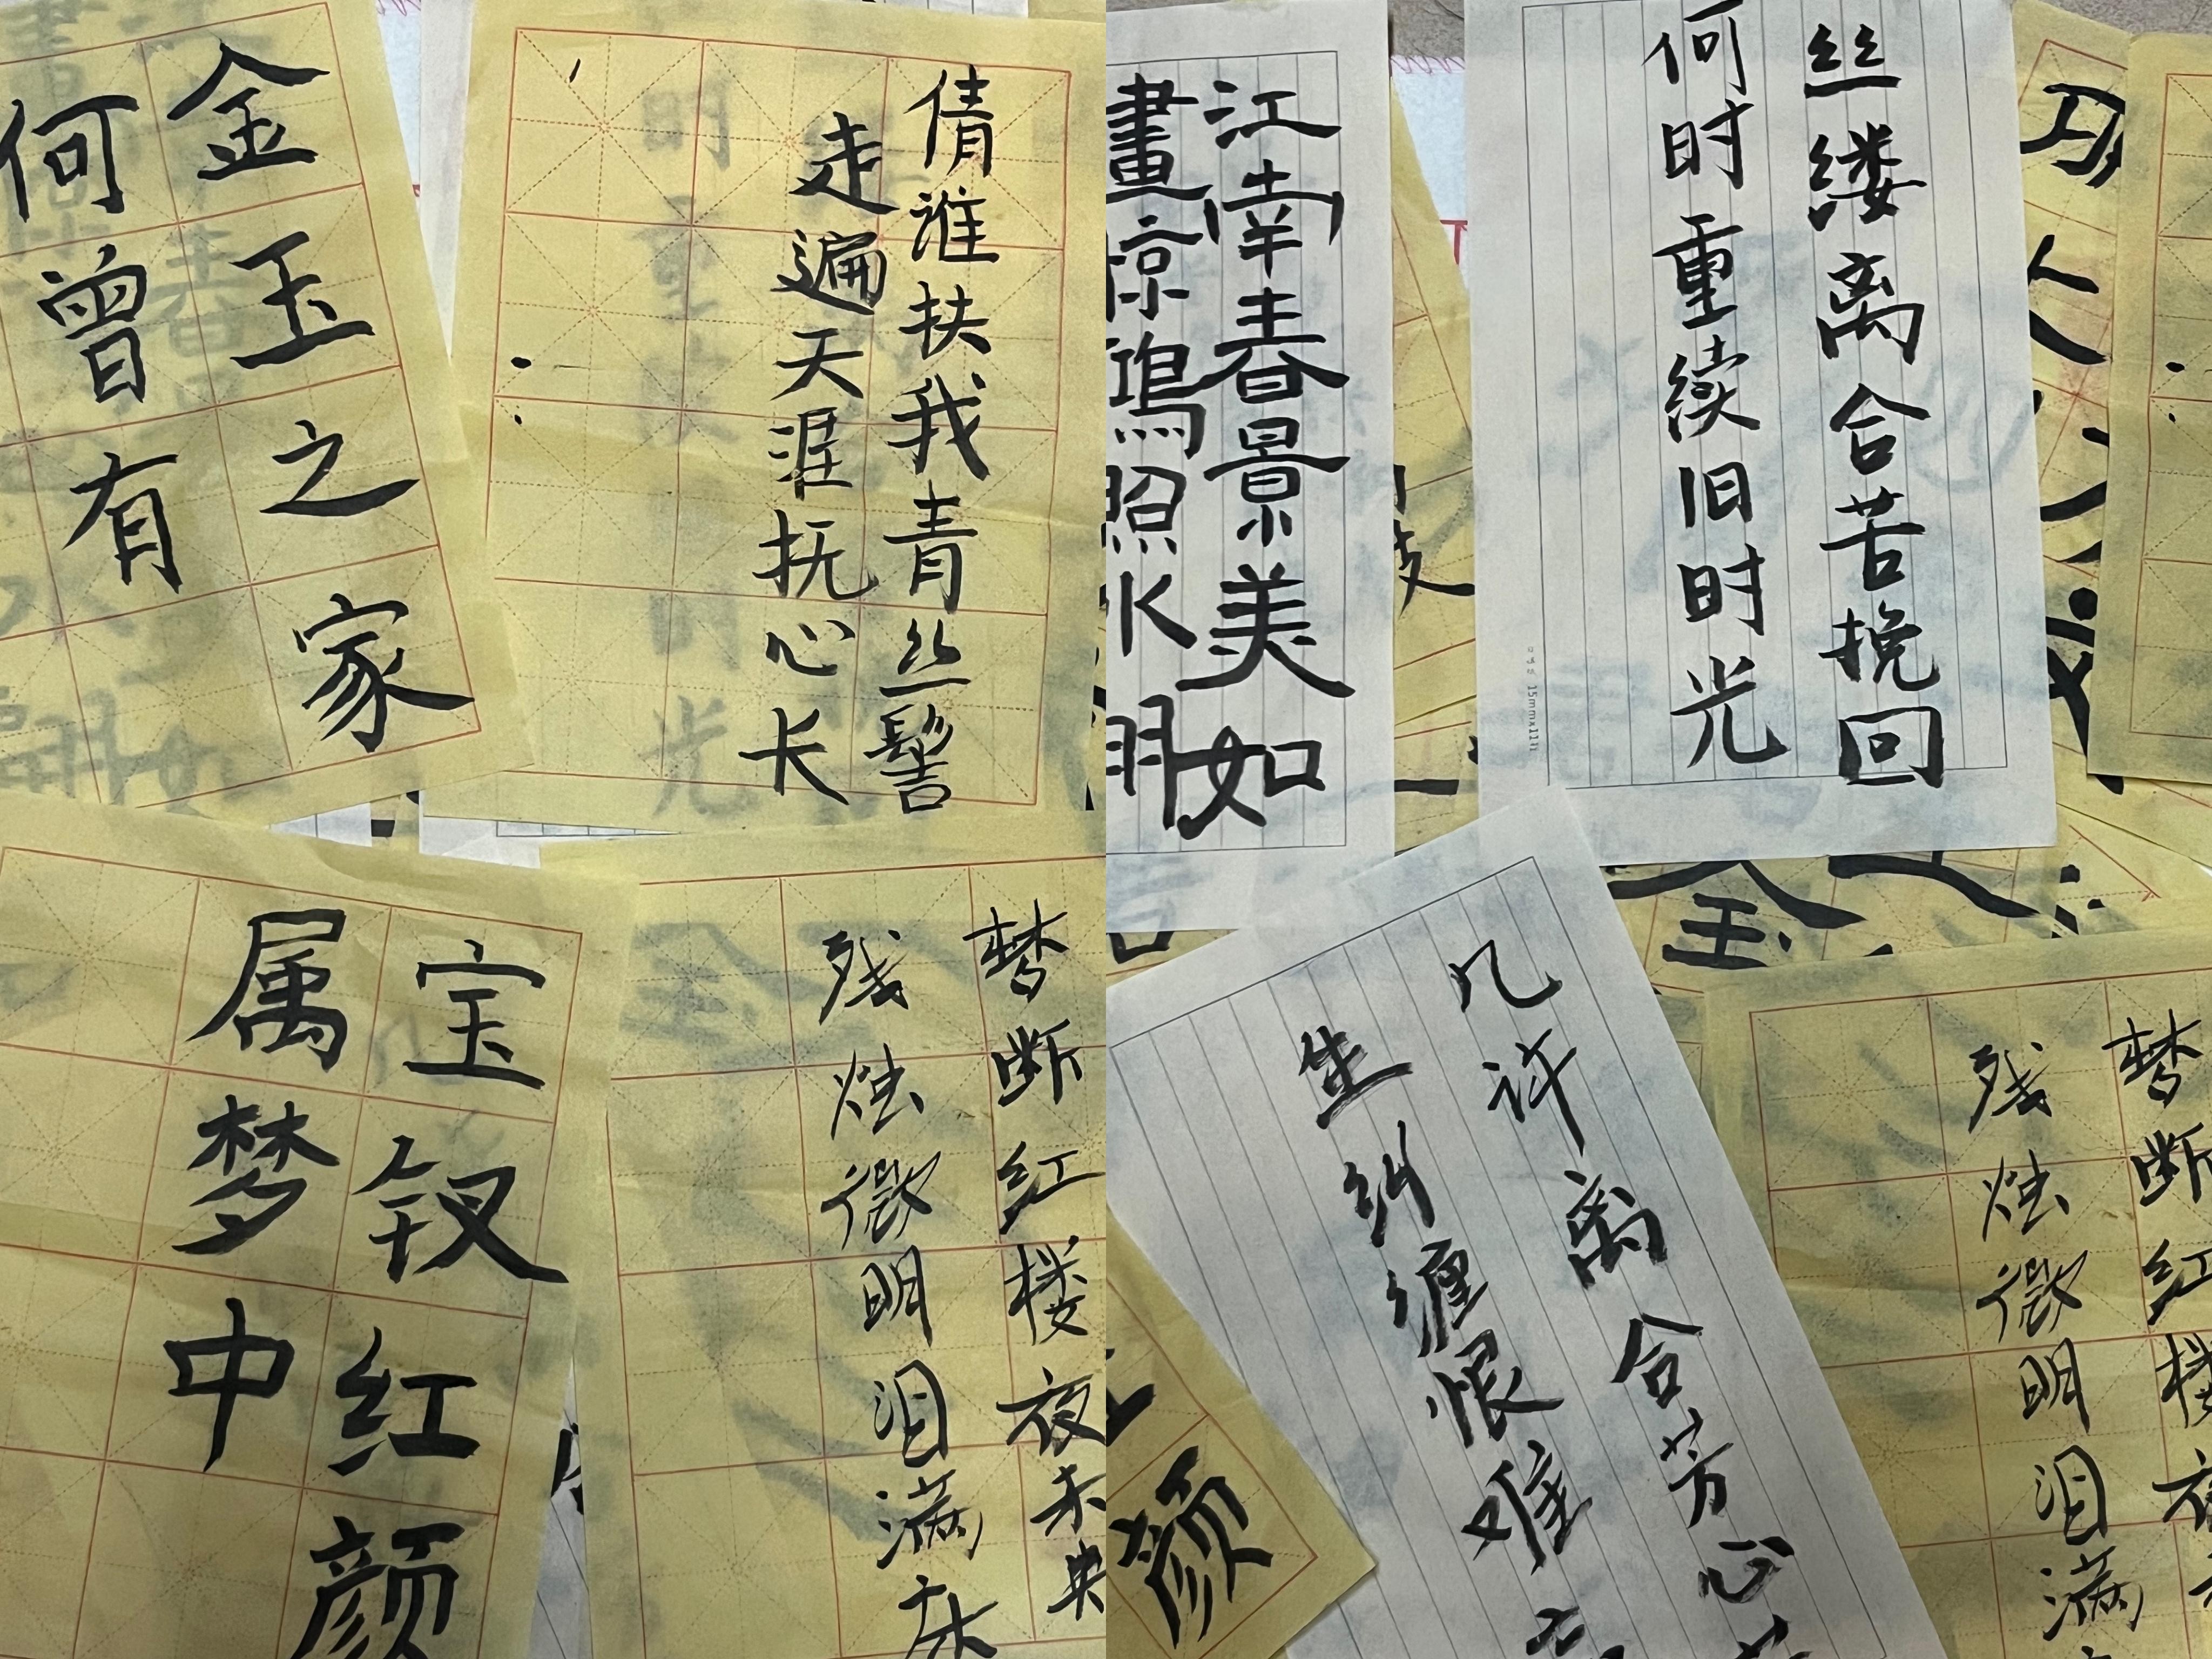 金玉之家
何曾有
倩谁扶我青丝髻
走遍天涯抚心长
江南春景美如
畫惊鴻照水明
丝缕离合苦挽回
何时重续旧时光
宝钗红颜
属梦中
梦断红楼夜未央
残烛微明泪满床
几许离合芳心
生纠缠恨难
颜
梦断红楼
残烛微明泪满